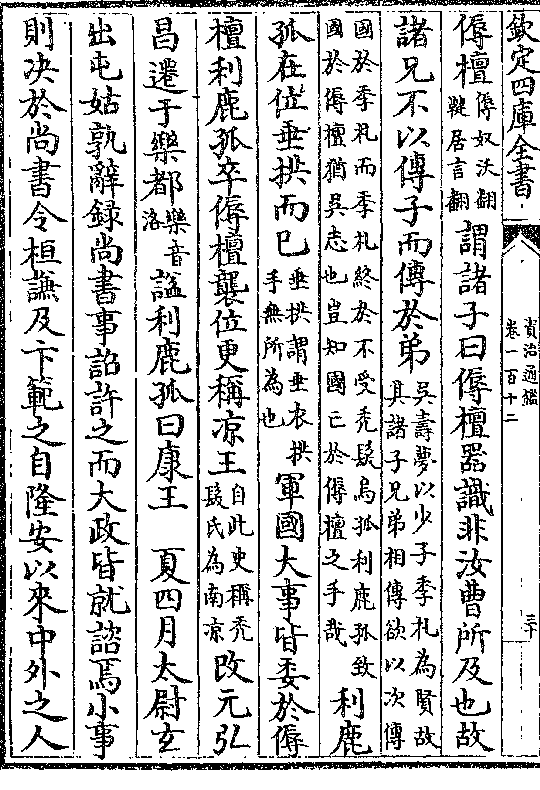 欽定四庫全書
資治通鑑
卷一百十二
三十
傉檀傉奴沃翻鞬居言翻謂諸子曰傉檀器識非汝曹所及也故
諸兄不以傳子而傳於弟吳壽夢以少子季札為賢故其諸子兄弟相傳欲以次傳
國於季札而季札終於不受禿髮烏孤利鹿孤致國於傉檀猶吳志也豈知國亡於傉檀之手哉利鹿
孤在位垂拱而已垂拱謂垂衣拱手無所為也軍國大事皆委於傉
檀利鹿孤卒傉檀襲位更稱凉王自此史稱禿髮氏為南凉改元弘
昌遷于樂都樂音洛諡利鹿孤曰康王　夏四月太尉玄
出屯姑孰辭録尚書事詔許之而大政皆就諮焉小事
則決於尚書令桓謙及卞範之自隆安以來中外之人